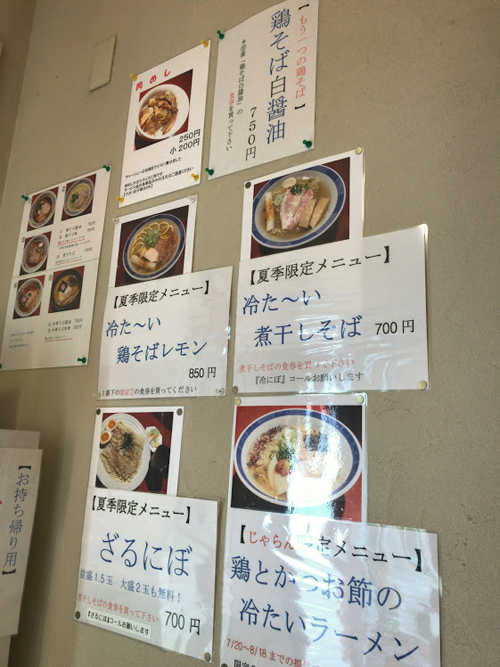 【もう一つの鶏そば】
鶏そば白醤油
750円
の食券を買って下さい
肉めし
250円
小 200円
【夏季限定メニュー】
冷た〜い
鶏そばレモン
850円
の食券を買ってください
【夏季限定メニュー】
冷た〜い
煮干しそば 700円
煮干しそばの食券を買って下さい
『冷にぼ』コールお願いします
【夏季限定メニュー】
ざるにぼ
並盛1.5玉 大盛2玉も無料!
煮干しそばの食券を買って下さい
700円
『ざるにぼ』コールお願いします
【じゃらん限定メニュー】
鶏とかつお節の
冷たいラーメン
7/20〜8/18までの
【お持ち帰り用】